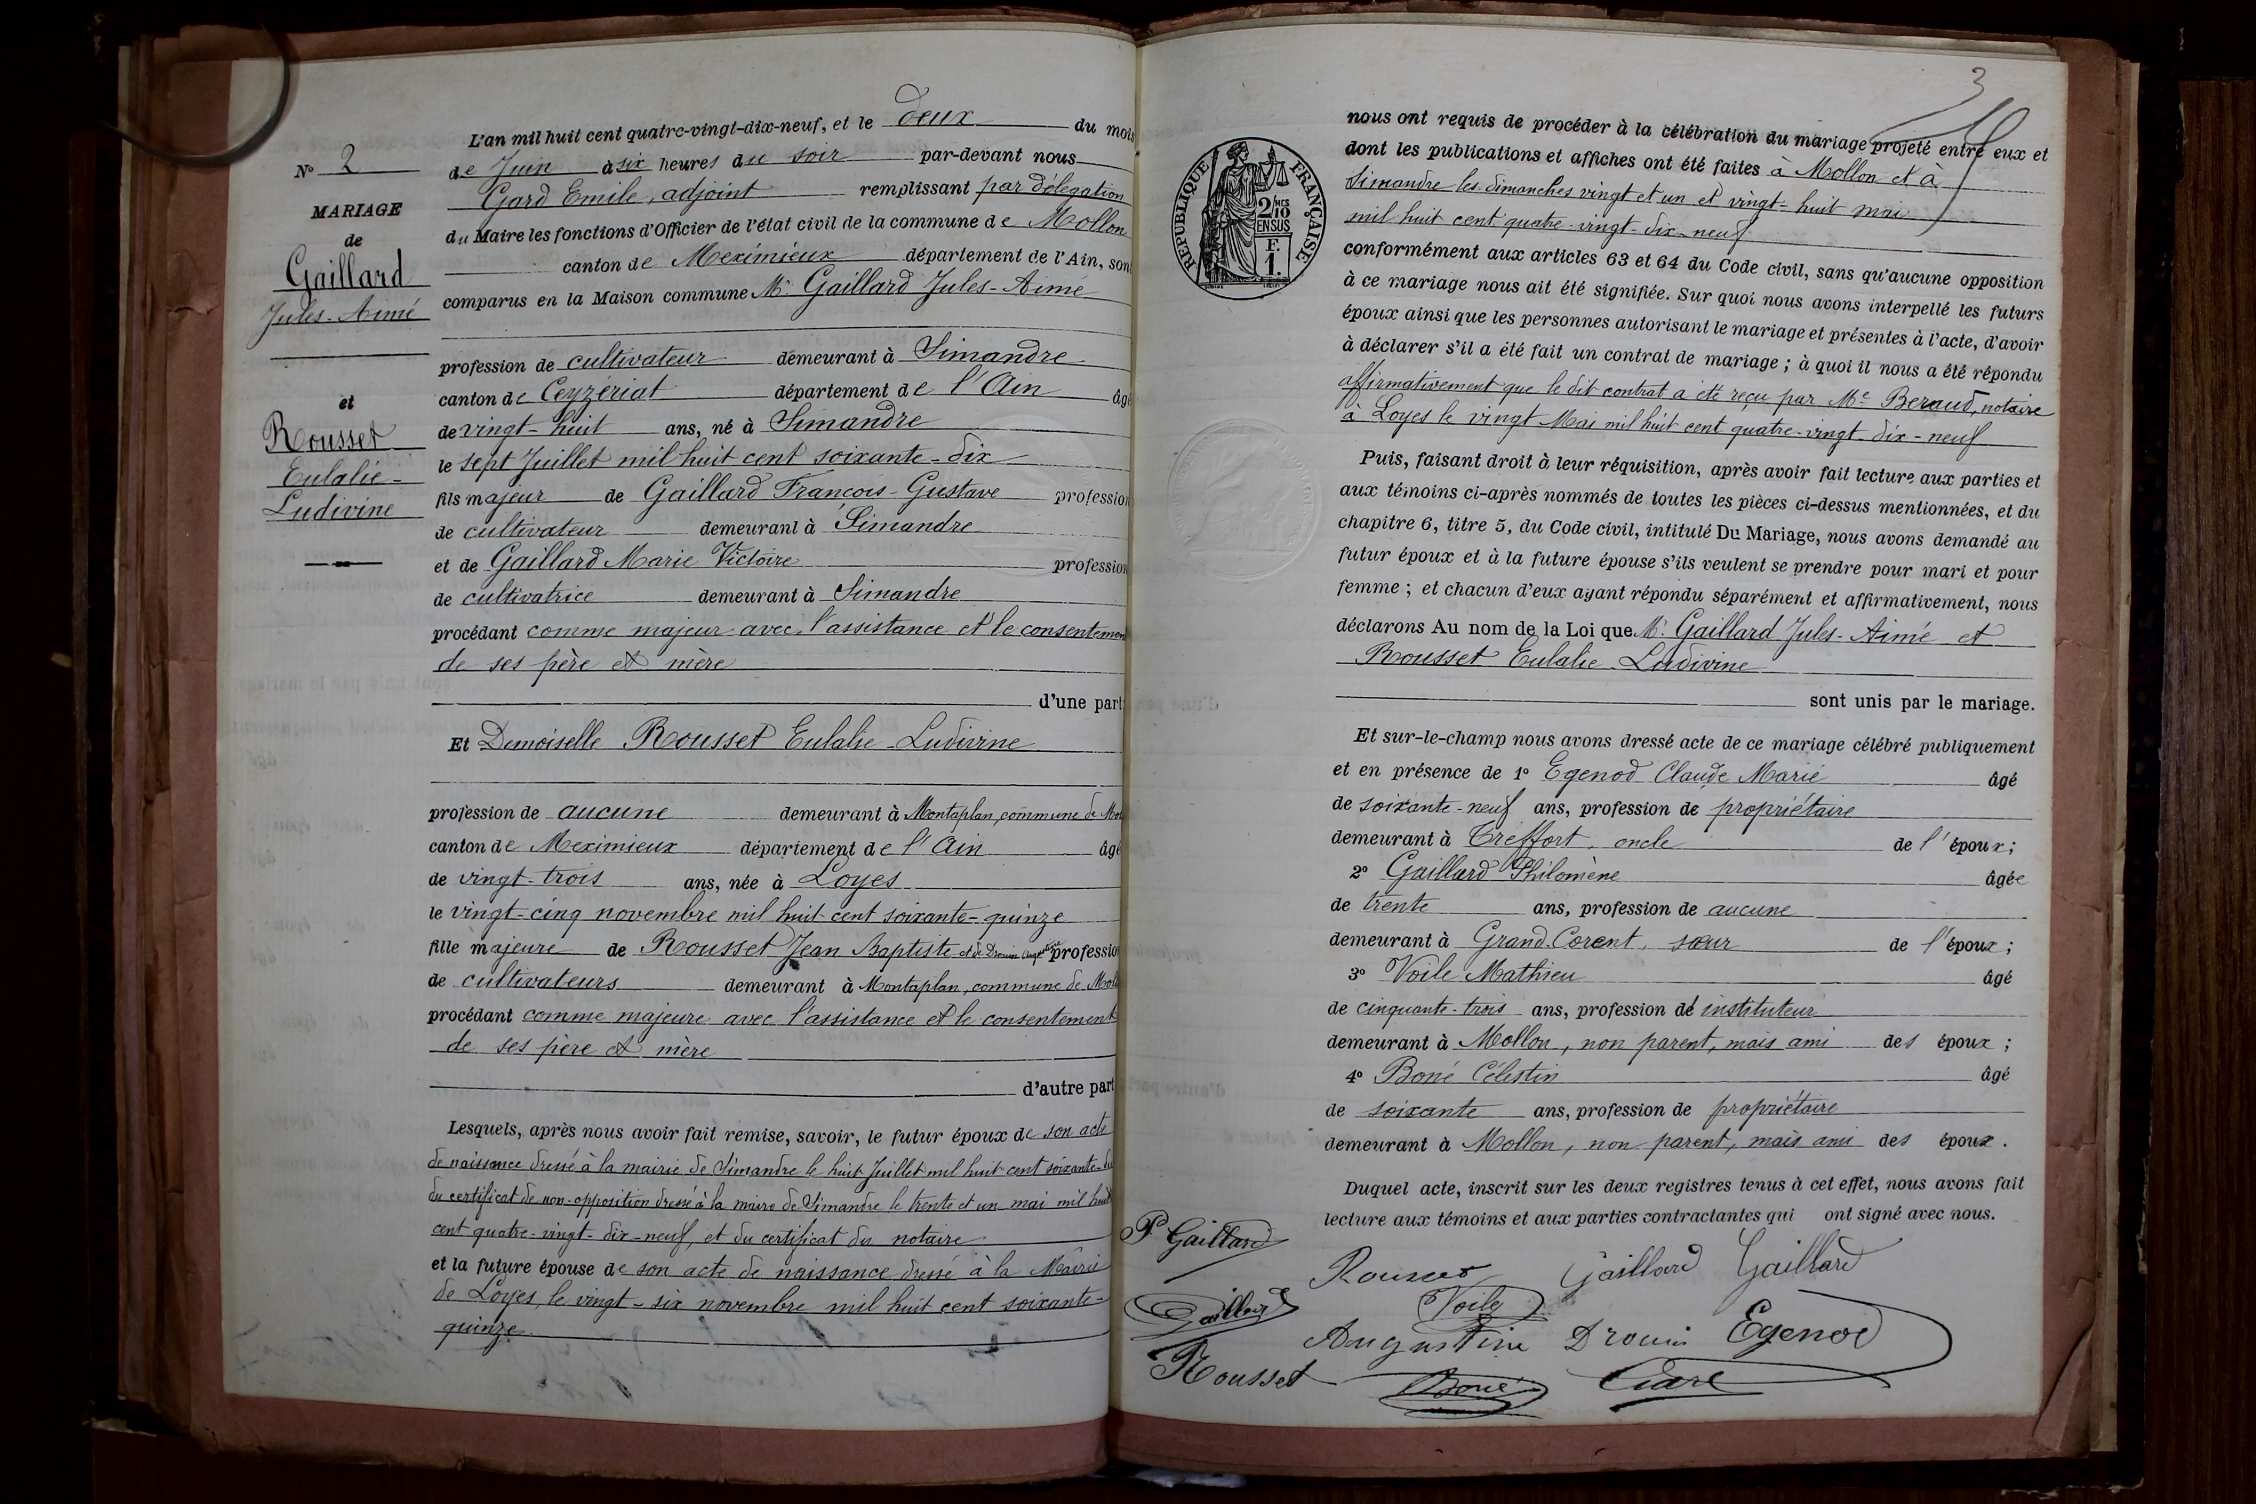 N° 2
MARIAGE
de
Gaillard
Jules-Aimé
et
Rousset
Eulalie-
Ludivine
L'an mil huit cent quatre-vingt-dix-neuf, et le deux du mois
de Juin à six heures du soir par-devant nous
Gard Emile, adjoint remplissant par délegation
du Maire les fonctions d'Officier de l'état civil de la commune de Mollon
canton de Meximieux département de l'Ain, sont
comparus en la Maison commune Mr Gaillard Jules-Aimé
profession de cultivateur demeurant à Simandre
canton de Ceyzériat département de l'Ain âgé
de vingt-huit ans, né à Simandre
le sept Juillet mil huit cent soixante-dix
fils majeur de Gaillard François-Gustave profession
de cultivateur demeurant à Simandre
et de Gaillard Marie Victoire profession
de cultivatrice demeurant à Simandre
procédant comme majeur avec l'assistance et le consentement
de ses père et mère
d'une part;
Et Demoiselle Rousset Eulalie-Ludivine
profession de aucune demeurant à Montaplan, commune de Mol
canton de Meximieux département de l'Ain âgé
de vingt-trois ans, née à Loyes
le vingt-cinq novembre mil huit cent soixante-quinze
fille majeure de Rousset Jean Baptiste et de Drouin Augustine profession
de cultivateurs demeurant à Montaplan, commune de Moll
procédant comme majeure avec l'assistance et le consentement
de ses père et mère
d'autre part
Lesquels, après nous avoir fait remise, savoir, le futur époux de son acte
de naissance dressé à la mairie de Simandre le huit Juillet mil huit cent soixante-dix
du certificat de non-opposition dressé à la maire de Simandre le trente et un mai mil huit
cent quatre-vingt-dix-neuf, et du certificat du notaire
et la future épouse de son acte de naissance dressé à la Mairie
de Loyes, le vingt-six novembre mil huit cent soixante-
quinze
3
RÉPUBLIQUE FRANÇAISE
2/10 EN SUS
F.
1.
nous ont requis de procéder à la célébration du mariage projeté entre eux et
dont les publications et affiches ont été faites à Mollon et à
Simandre les dimanches vingt et un et vingt-huit mai
mil huit cent quatre-vingt-dix-neuf
conformément aux articles 63 et 64 du Code civil, sans qu'aucune opposition
à ce mariage nous ait été signifiée. Sur quoi nous avons interpellé les futurs
époux ainsi que les personnes autorisant le mariage et présentes à l'acte, d'avoir
à déclarer s'il a été fait un contrat de mariage ; à quoi il nous a été répondu
affirmativement que le dit contrat a été reçu par Me Beraud, notaire
à Loyes le vingt Mai mil huit cent quatre-vingt-dix-neuf
Puis, faisant droit à leur réquisition, après avoir fait lecture aux parties et
aux témoins ci-après nommés de toutes les pièces ci-dessus mentionnées, et du
chapitre 6, titre 5, du Code civil, intitulé Du Mariage, nous avons demandé au
futur époux et à la future épouse s'ils veulent se prendre pour mari et pour
femme ; et chacun d'eux ayant répondu séparément et affirmativement, nous
déclarons Au nom de la Loi que Mr Gaillard Jules-Aimé et
Rousset Eulalie-Ludivine
sont unis par le mariage.
Et sur-le-champ nous avons dressé acte de ce mariage célébré publiquement
et en présence de 1° Egenod Claude Marie âgé
de soixante-neuf ans, profession de propriétaire
demeurant à Treffort, oncle de l'époux;
2° Gaillard Philomène âgée
de trente ans, profession de aucune
demeurant à Grand-Corent, sœur de l'époux ;
3° Voile Mathieu âgé
de cinquante-trois ans, profession de instituteur
demeurant à Mollon, non parent, mais ami des époux ;
4° Boné Célestin âgé
de soixante ans, profession de propriétaire
demeurant à Mollon, non parent, mais ami des époux.
Duquel acte, inscrit sur les deux registres tenus à cet effet, nous avons fait
lecture aux témoins et aux parties contractantes qui ont signé avec nous.
P Gaillard
Rousset Gaillard Gaillard
Gaillard Voile
Augustine Drouin Egenod
Rousset Boné Gard